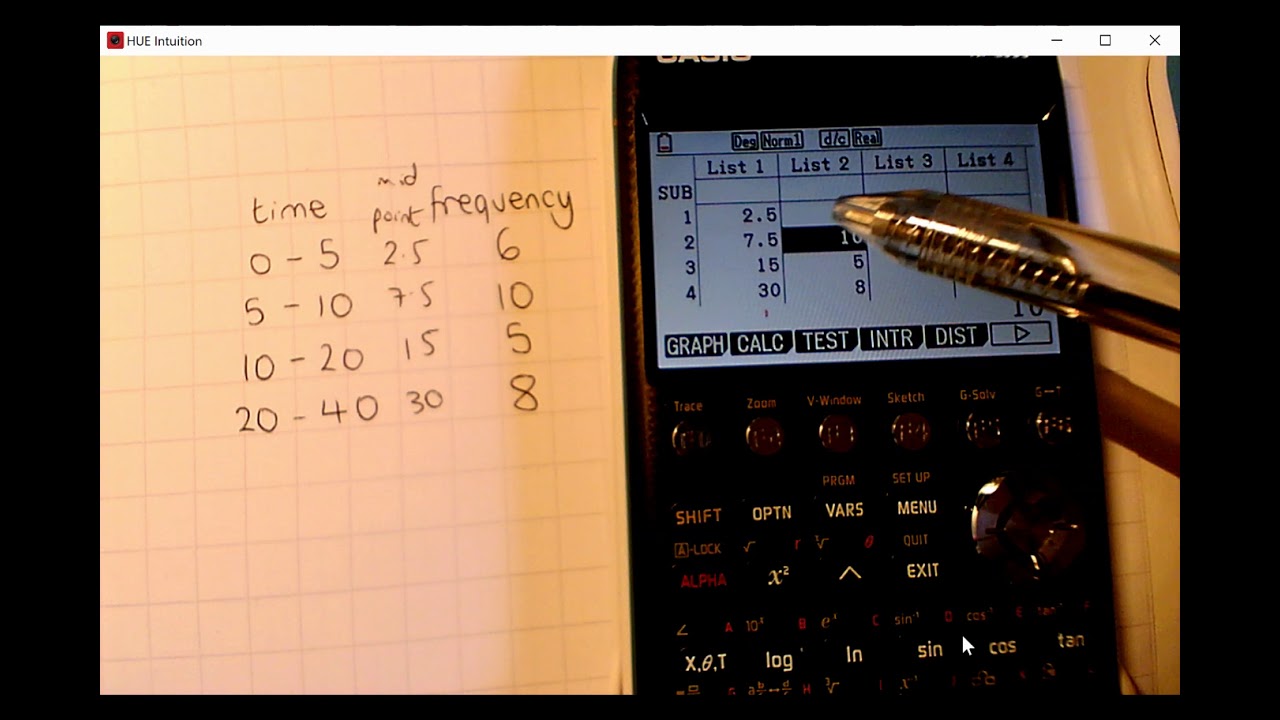 HUE Intuition
mid
time point frequency
0 - 5 2.5 6
5 - 10 7.5 10
10 - 20 15 5
20 - 40 30 8
CASIO
Deg Norm1 d/c Real
List 1 List 2 List 3 List 4
SUB
1 2.5
2 7.5 10
3 15 5
4 30 8
10
GRAPH CALC TEST INTR DIST
Trace Zoom V-Window Sketch G-Solv G↔T
PRGM SET UP
SHIFT OPTN VARS MENU
A-LOCK √ r ∛ θ QUIT
ALPHA x² ^ EXIT
∠ A 10ˣ B eˣ C sin⁻¹ D cos⁻¹ E tan⁻¹ F
X,θ,T log ln sin cos tan